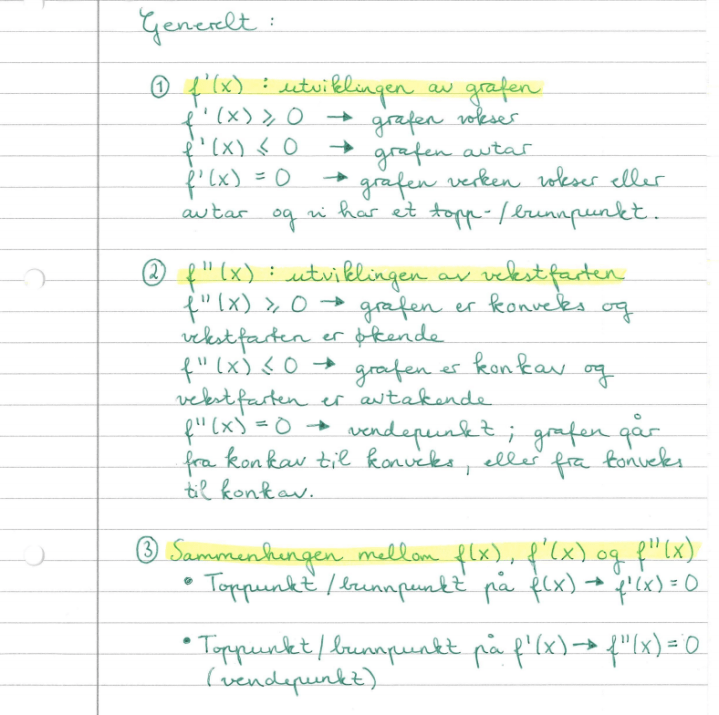 Generelt :
① f'(x) : utviklingen av grafen
f'(x) ⩾ 0 → grafen vokser
f'(x) ⩽ 0 → grafen avtar
f'(x) = 0 → grafen verken vokser eller
avtar og vi har et topp-/bunnpunkt.
② f''(x) : utviklingen av vekstfarten
f''(x) ⩾ 0 → grafen er konveks og
vekstfarten er økende
f''(x) ⩽ 0 → grafen er konkav og
vekstfarten er avtakende
f''(x) = 0 → vendepunkt ; grafen går
fra konkav til konveks, eller fra konveks
til konkav.
③ Sammenhengen mellom f(x), f'(x) og f''(x)
• Toppunkt / bunnpunkt på f(x) → f'(x) = 0
• Toppunkt/bunnpunkt på f'(x) → f''(x) = 0
(vendepunkt)